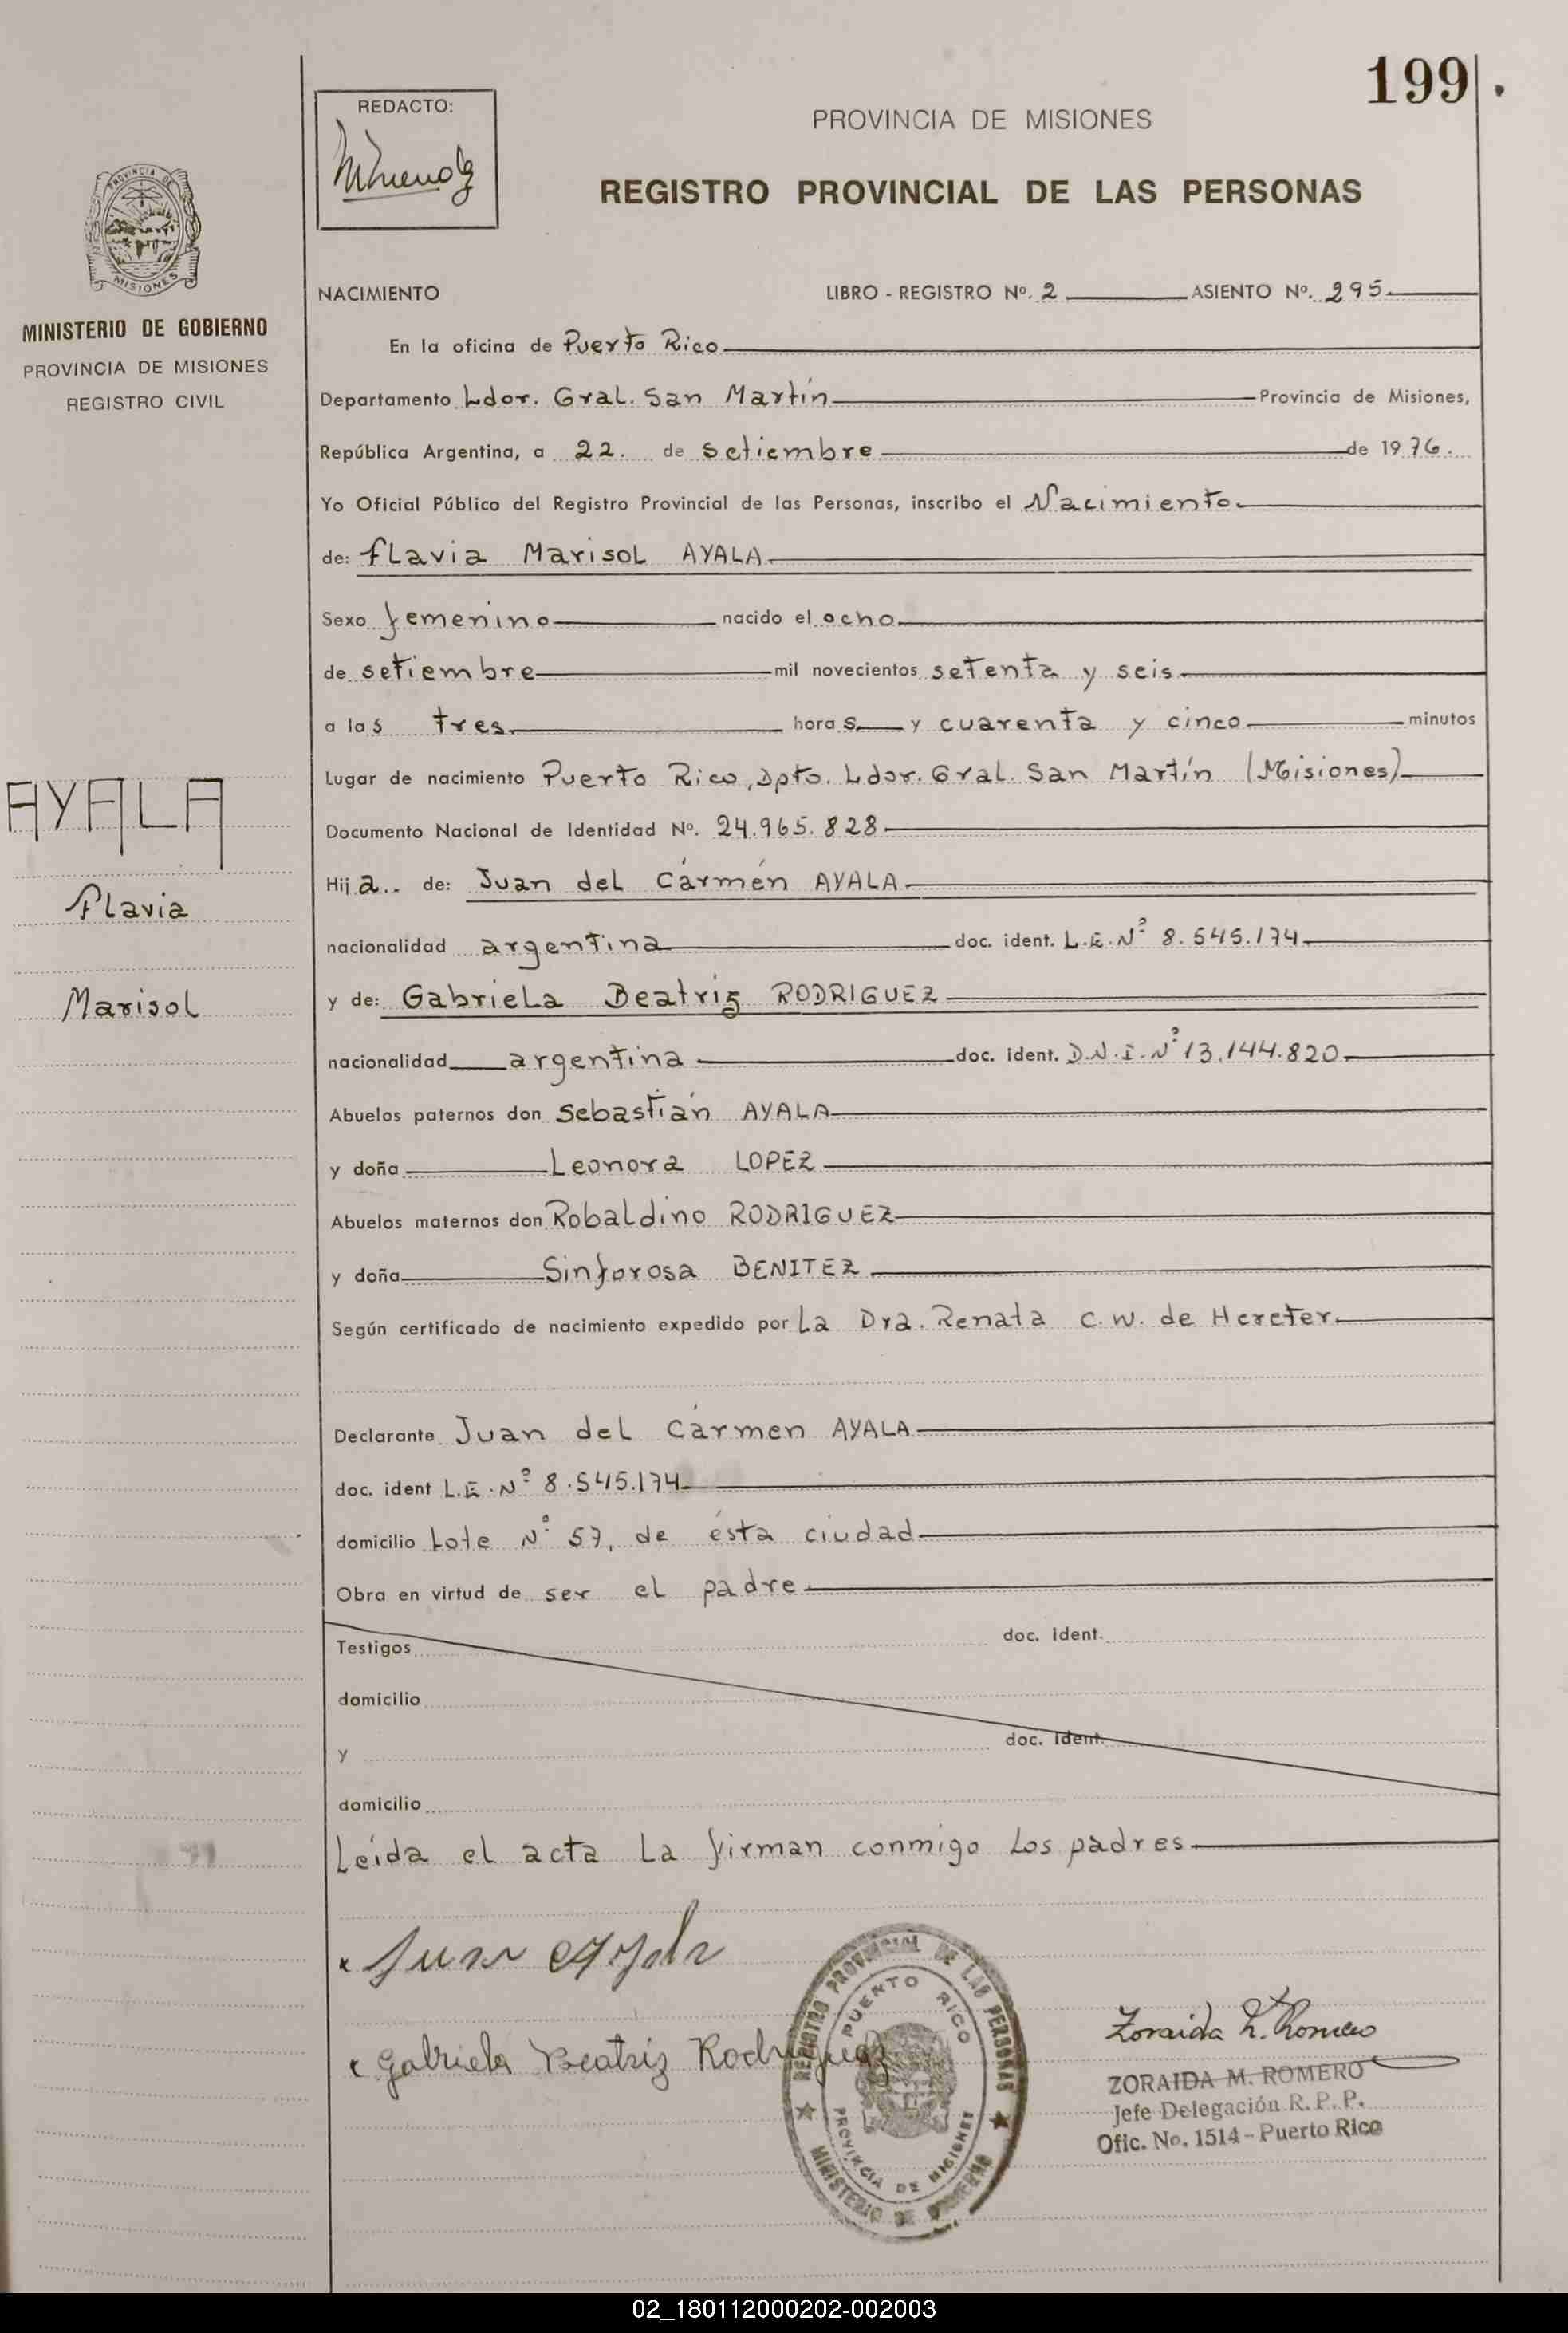 199
REDACTO:
PROVINCIA DE MISIONES
REGISTRO PROVINCIAL DE LAS PERSONAS
PROVINCIA DE
MISIONES
MINISTERIO DE GOBIERNO
PROVINCIA DE MISIONES
REGISTRO CIVIL
NACIMIENTO LIBRO - REGISTRO Nº. 2 ASIENTO Nº. 295
En la oficina de Puerto Rico
Departamento Ldor. Gral. San Martín Provincia de Misiones,
República Argentina, a 22. de setiembre de 1976.
Yo Oficial Público del Registro Provincial de las Personas, inscribo el Nacimiento
de: Flavia Marisol AYALA
Sexo femenino nacido el ocho
de setiembre mil novecientos setenta y seis
a las tres horas y cuarenta y cinco minutos
Lugar de nacimiento Puerto Rico, Dpto. Ldor. Gral. San Martín (Misiones)
AYALA
Flavia
Marisol
Documento Nacional de Identidad Nº. 24.965.828
Hija de: Juan del Cármén AYALA
nacionalidad argentina doc. ident. L.E.Nº 8.545.174
y de: Gabriela Beatriz RODRIGUEZ
nacionalidad argentina doc. ident. D.N.I.Nº 13.144.820
Abuelos paternos don Sebastián AYALA
y doña Leonora LOPEZ
Abuelos maternos don Robaldino RODRIGUEZ
y doña Sinforosa BENITEZ
Según certificado de nacimiento expedido por La Dra. Renata C.W. de Hereter
Declarante Juan del Cármen AYALA
doc. ident L.E.Nº 8.545.174
domicilio Lote Nº 57, de ésta ciudad
Obra en virtud de ser el padre
Testigos doc. ident.
domicilio
y doc. ident.
domicilio
Leída el acta la firman conmigo los padres
Juan Ayala
Gabriela Beatriz Rodriguez
REGISTRO PROVINCIAL DE LAS PERSONAS
PUERTO RICO
PROVINCIA DE MISIONES
MINISTERIO DE GOBIERNO
Zoraida M. Romero
ZORAIDA M. ROMERO
Jefe Delegación R. P. P.
Ofic. No. 1514 - Puerto Rico
02_180112000202-002003